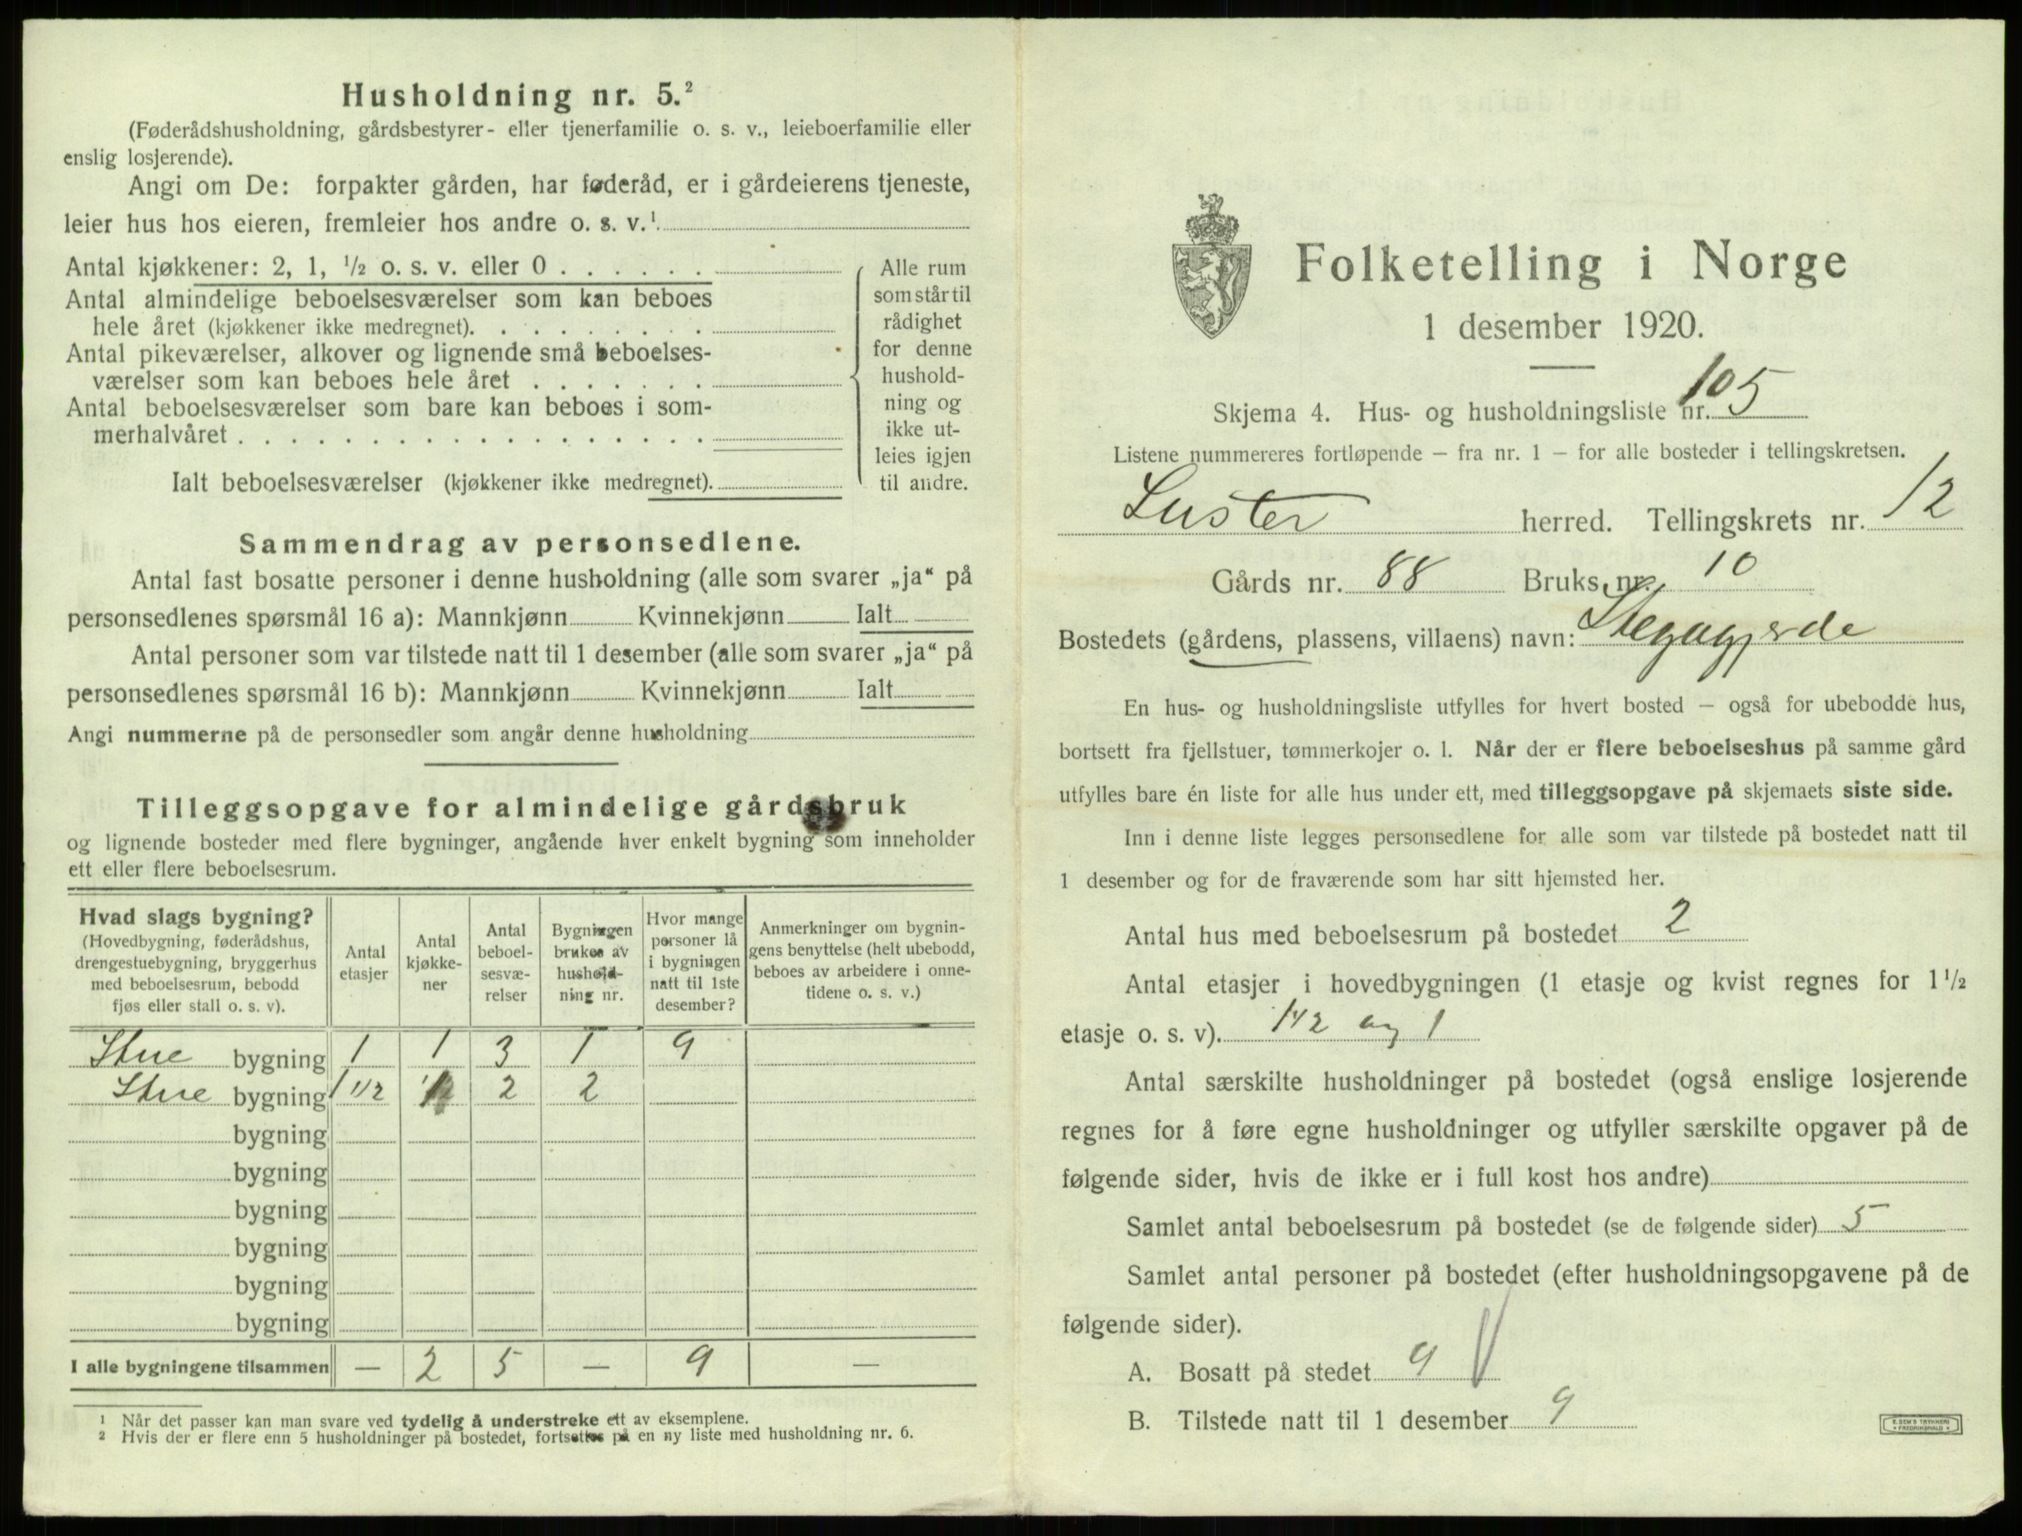 Husholdning nr. 5.²
(Føderådshusholdning, gårdsbestyrer- eller tjenerfamilie o. s. v., leieboerfamilie eller
enslig losjerende).
Angi om De: forpakter gården, har føderåd, er i gårdeierens tjeneste,
leier hus hos eieren, fremleier hos andre o. s. v.¹
Antal kjøkkener: 2, 1, ½ o. s. v. eller 0 . . . . . .
Antal almindelige beboelsesværelser som kan beboes
hele året (kjøkkener ikke medregnet). . . . . . . . .
Antal pikeværelser, alkover og lignende små beboelses-
værelser som kan beboes hele året . . . . . . .
Antal beboelsesværelser som bare kan beboes i som-
merhalvåret . . . . . . . . . . . . . . . . . .
Ialt beboelsesværelser (kjøkkener ikke medregnet).
Alle rum
som står til
rådighet
for denne
hushold-
ning og
ikke ut-
leies igjen
til andre.
Sammendrag av personsedlene.
Antal fast bosatte personer i denne husholdning (alle som svarer „ja“ på
personsedlenes spørsmål 16 a): Mannkjønn Kvinnekjønn Ialt
Antal personer som var tilstede natt til 1 desember (alle som svarer „ja“ på
personsedlenes spørsmål 16 b): Mannkjønn Kvinnekjønn Ialt
Angi nummerne på de personsedler som angår denne husholdning
Tilleggsopgave for almindelige gårdsbruk
og lignende bosteder med flere bygninger, angående hver enkelt bygning som inneholder
ett eller flere beboelsesrum.
Hvad slags bygning?
(Hovedbygning, føderådshus,
drengestuebygning, bryggerhus
med beboelsesrum, bebodd
fjøs eller stall o. s. v).
Antal
etasjer
Antal
kjøkke-
ner
Antal
beboel-
sesvæ-
relser
Bygningen
brukes av
hushold-
ning nr.
Hvor mange
personer lå
i bygningen
natt til 1ste
desember?
Anmerkninger om bygnin-
gens benyttelse (helt ubebodd,
beboes av arbeidere i onne-
tidene o. s. v.)
Stue bygning 1 1 3 1 9
Stue bygning 1 1/2 2 2
bygning
bygning
bygning
bygning
bygning
bygning
I alle bygningene tilsammen — 2 5 — 9 —
¹ Når det passer kan man svare ved tydelig å understreke ett av eksemplene.
² Hvis der er flere enn 5 husholdninger på bostedet, fortsettes på en ny liste med husholdning nr. 6.
Folketelling i Norge
1 desember 1920.
Skjema 4. Hus- og husholdningsliste nr. 105
Listene nummereres fortløpende – fra nr. 1 – for alle bosteder i tellingskretsen.
Luster herred. Tellingskrets nr. 12
Gårds nr. 88 Bruks nr. 10
Bostedets (gårdens, plassens, villaens) navn: Stegagjerde
En hus- og husholdningsliste utfylles for hvert bosted – også for ubebodde hus,
bortsett fra fjellstuer, tømmerkojer o. l. Når der er flere beboelseshus på samme gård
utfylles bare én liste for alle hus under ett, med tilleggsopgave på skjemaets siste side.
Inn i denne liste legges personsedlene for alle som var tilstede på bostedet natt til
1 desember og for de fraværende som har sitt hjemsted her.
Antal hus med beboelsesrum på bostedet 2
Antal etasjer i hovedbygningen (1 etasje og kvist regnes for 1½
etasje o. s. v). 1 1/2 og 1
Antal særskilte husholdninger på bostedet (også enslige losjerende
regnes for å føre egne husholdninger og utfyller særskilte opgaver på de
følgende sider, hvis de ikke er i full kost hos andre)
Samlet antal beboelsesrum på bostedet (se de følgende sider) 5
Samlet antal personer på bostedet (efter husholdningsopgavene på de
følgende sider).
A. Bosatt på stedet 9
B. Tilstede natt til 1 desember 9